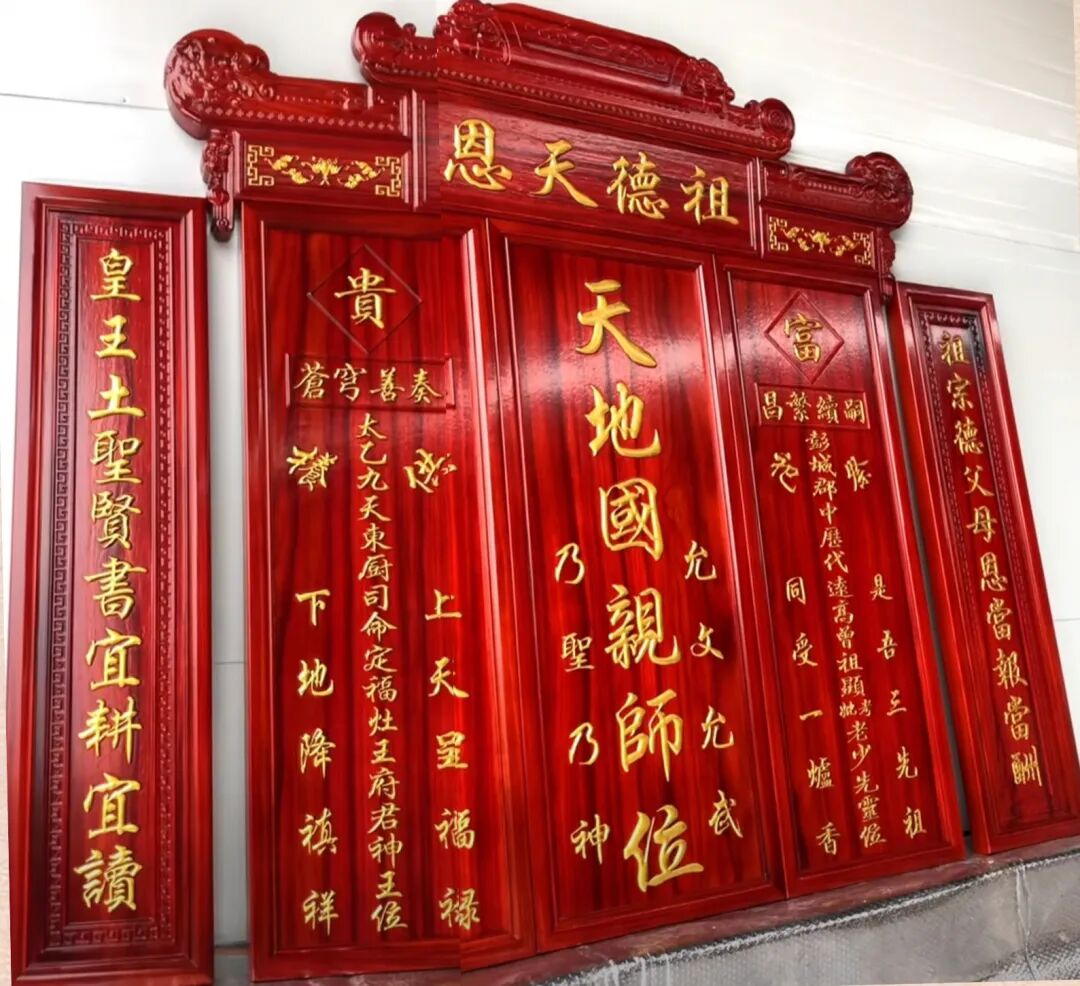 祖德天恩
祖宗德父母恩當報當酬
富
嗣續繁昌
是吾三先祖
彭城郡中歷代遠高曾祖顯考妣老少先靈位
同受一爐香
允文允武
天地國親師位
乃聖乃神
貴
奏善穹蒼
上天呈福禄
太乙九天東厨司命定福灶王府君神王位
下地降禎祥
皇王土聖賢書宜耕宜讀